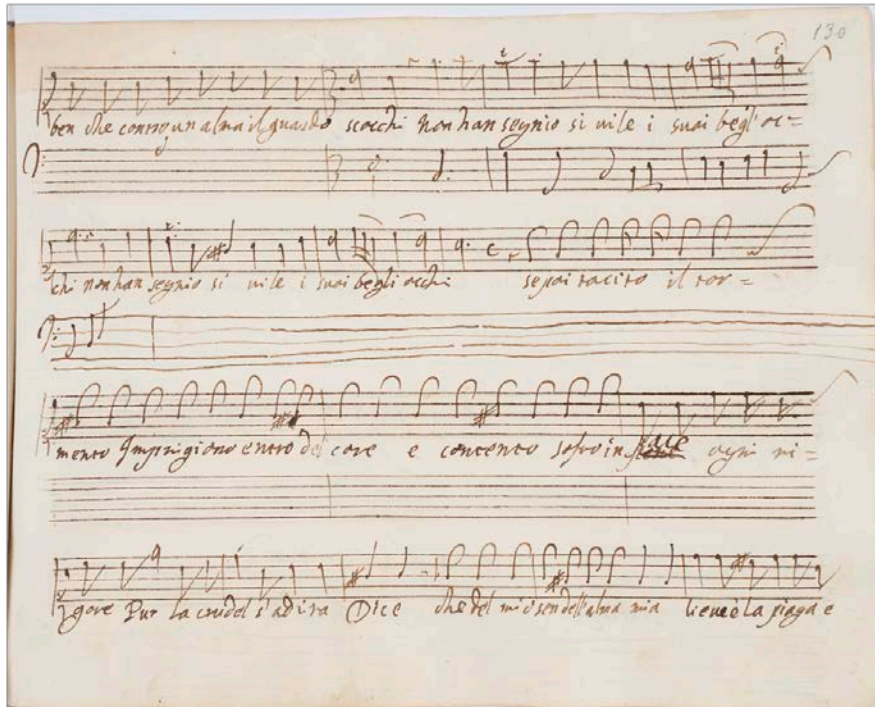 130
ben che contro un alma il guardo scocchi non han segnio si vile i suoi begl' oc=
chi non han segnio si vile i suoi begli occhi se poi tacito il tor=
mento Imprigiono entro del core e contento sofro in pace ogni ri=
gore Pur la crudel s'adira Dice che del mio sen dell'alma mia lieve è la piaga e